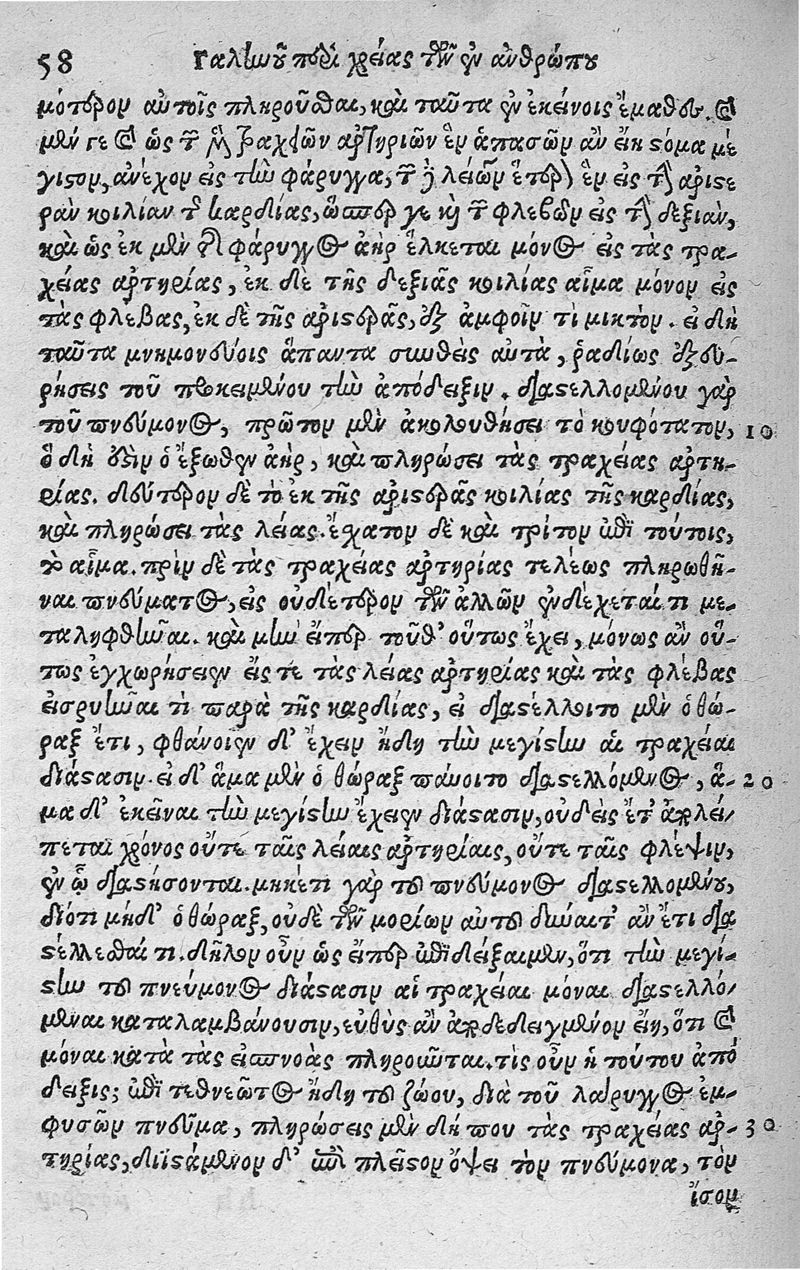 58 Γαληνοῦ περὶ χρείας τῶν ἐν ἀνθρώπου
μότερον αὐτοῖς πληροῦσθαι, καὶ ταῦτα ἐν ἐκείνοις ἔμαθες. καὶ
μὲν γε καὶ ὡς τῶν μὲν τραχειῶν ἀρτηριῶν ἓν ἁπασῶν ἂν εἴη στόμα μέ
γιστον, ἀνέχον εἰς τὴν φάρυγγα, τῶν δὲ λείων ἕτερον ἓν εἰς τὴν ἀριστε
ρὰν κοιλίαν τῆς καρδίας, ὥσπερ γε καὶ τῶν φλεβῶν εἰς τὴν δεξιὰν,
καὶ ὡς ἐκ μὲν τοῦ φάρυγγος ἀὴρ ἕλκεται μόνος εἰς τὰς τρα-
χείας ἀρτηρίας, ἐκ δὲ τῆς δεξιᾶς κοιλίας αἷμα μόνον εἰς
τὰς φλέβας, ἐκ δὲ τῆς ἀριστερᾶς, ἐξ ἀμφοῖν τὶ μικτόν. εἰ δὴ
ταῦτα μνημονεύοις ἅπαντα συνθεὶς αὐτὰ, ῥαδίως ἐξευ-
ρήσεις τοῦ προκειμένου τὴν ἀπόδειξιν. διαστελλομένου γὰρ
τοῦ πνεύμονος, πρῶτον μὲν ἀκολουθήσει τὸ κουφότατον, 10
ὃ δή ἐστιν ὁ ἔξωθεν ἀὴρ, καὶ πληρώσει τὰς τραχείας ἀρτη-
ρίας. δεύτερον δὲ τὸ ἐκ τῆς ἀριστερᾶς κοιλίας τῆς καρδίας,
καὶ πληρώσει τὰς λείας. ἔσχατον δὲ καὶ τρίτον ἐπὶ τούτοις,
τὸ αἷμα. πρὶν δὲ τὰς τραχείας ἀρτηρίας τελέως πληρωθῆ-
ναι πνεύματος, εἰς οὐδέτερον τῶν ἄλλων ἐνδέχεταί τι με-
ταληφθῆναι. καὶ μὴν εἴπερ τοῦθ' οὕτως ἔχει, μόνως ἂν οὕ-
τως ἐγχωρήσειεν εἴς τε τὰς λείας ἀρτηρίας καὶ τὰς φλέβας
εἰσρυῆναι τὶ παρὰ τῆς καρδίας, εἰ διαστέλλοιτο μὲν ὁ θώ-
ραξ ἔτι, φθάνοιεν δ' ἔχειν ἤδη τὴν μεγίστην αἱ τραχεῖαι
διάστασιν. εἰ δ' ἅμα μὲν ὁ θώραξ παύοιτο διαστελλόμενος, ἅ- 20
μα δ' ἐκεῖναι τὴν μεγίστην ἔχειεν διάστασιν, οὐδεὶς ἔτ' ἀπολεί
πεται χρόνος οὔτε ταῖς λείαις ἀρτηρίαις, οὔτε ταῖς φλεψὶν,
ἐν ᾧ διαστήσονται. μηκέτι γὰρ τοῦ πνεύμονος διαστελλομένου,
διότι μηδ' ὁ θώραξ, οὐδὲ τῶν μορίων αὐτοῦ δύναιτ' ἂν ἔτι δια
στέλλεσθαί τι. δῆλον οὖν ὡς εἴπερ ἐπιδείξαιμεν, ὅτι τὴν μεγί-
στην τοῦ πνεύμονος διάστασιν αἱ τραχεῖαι μόναι διαστελλό
μεναι καταλαμβάνουσιν, εὐθὺς ἂν ἀποδεδειγμένον εἴη, ὅτι καὶ
μόναι κατὰ τὰς εἰσπνοὰς πληροῦνται. τίς οὖν ἡ τούτου ἀπό
δειξις; ἐπὶ τεθνεῶτος ἤδη τοῦ ζώου, διὰ τοῦ λάρυγγος ἐμ-
φυσῶν πνεῦμα, πληρώσεις μὲν δή που τὰς τραχείας ἀρ- 30
τηρίας, διϊστάμενον δ' ἐπὶ πλεῖστον ὄψει τὸν πνεύμονα, τὸν
ἴσον